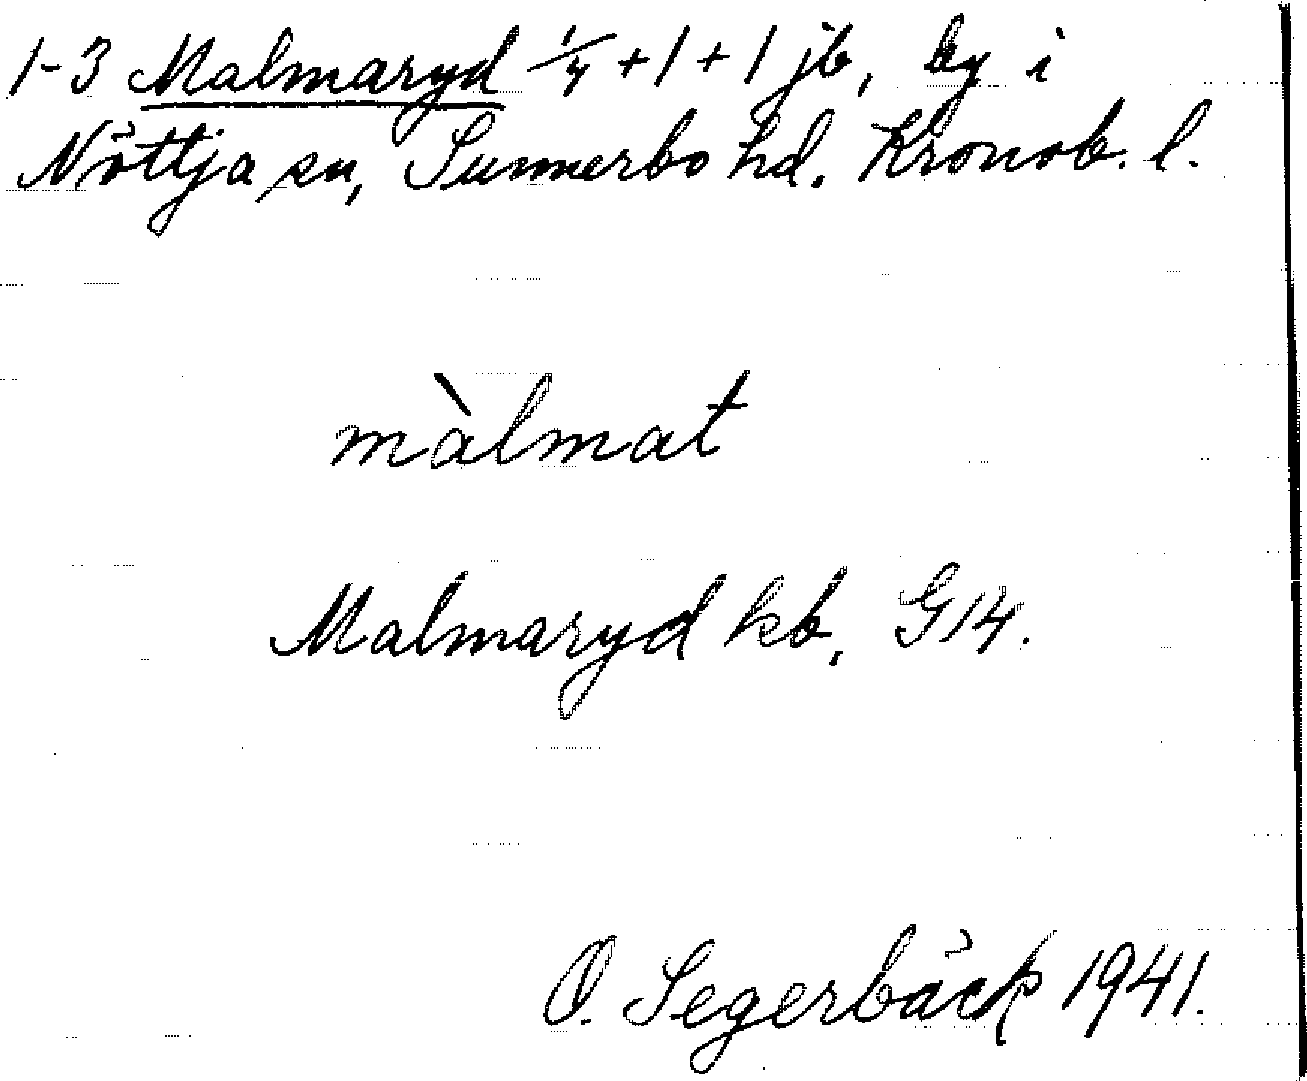 1-3 Malmaryd 1/4 + 1 + 1 jb, by i
Nöttja sn, Sunnerbo hd. Kronob. l.
màlmat
Malmaryd kb, G14.
O. Segerbäck 1941.